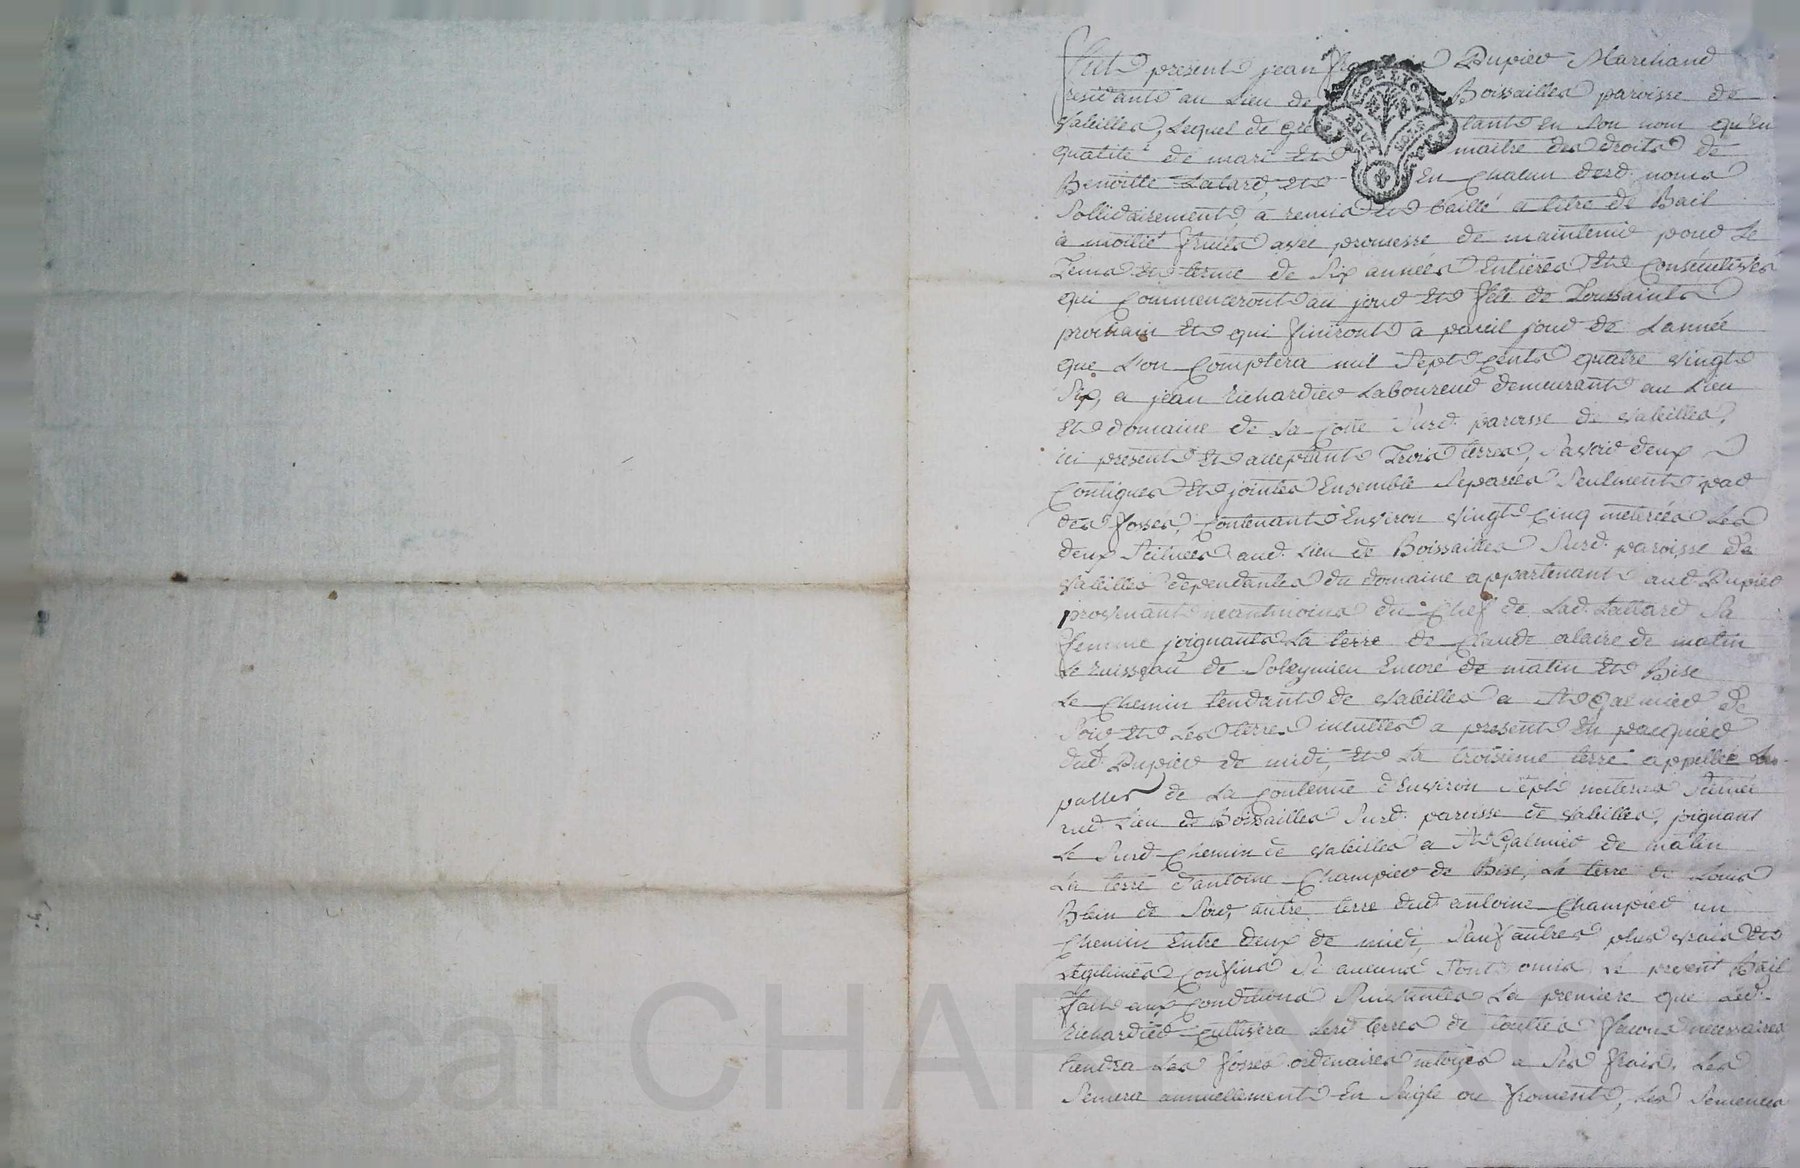 Fut present jean Dupier Marchand
residant au Lieu de Boissailles paroisse de
Valeilles, Lequel de gré tant En Son nom qu'En
qualité de mari Et maitre des droits de
Benoitte Et En Chacun desd. noms
Sollidairement a remis Et baillé a titre de Bail
à moitié fruits avec promesse de maintenir pour Le
Tems Et terme de Six années Entieres Et Consecutives
qui Commenceront au jour Et fête de Toussaints
prochain Et qui finiront a pareil jour de L'année
que L'on Comptera mil Sept Cents quatre vingt
Six, a jean Richardier Laboureur demeurant au Lieu
Et domaine de La Surd. paroisse de Valeilles,
ici present Et acceptant Trois terres, Savoir deux
Contigues Et jointes Ensemble Separées Seulment par
des fossés, Contenant Environ vingt Cinq meterées Les
deux Scituées aud. Lieu de Boissailles Surd. paroisse de
Valeilles dependantes du domaine appartenant aud. Dupier
provenant neantmoins du Chef de Lad. Sa
femme joignants La terre de Claude de matin
Le ruisseau de Soleymieu Encore de matin Et Bise
Le Chemin tendant de Valeilles a St Galmier de
Soir Et Les terres a present En
dud. Dupier de midi, Et La troisieme terre appellée
de La Contenue d'Environ Sept Scituée
aud. Lieu de Boissailles Surd. paroisse de Valeilles, joignant
Le Surd. Chemin de Valeilles a St Galmier de matin
La terre d'antoine Champier de Bise, La terre de Louis
Blein de Soir, autre terre dud. antoine Champier un
Chemin Entre deux de midi, Sauf autres plus vrais Et
Legitimes Confins Si aucuns Sont omis Le present Bail
fait aux Conditions Suivantes La premiere que Led.
Richardier Cultivera Lesd. terres de toutes facons necessaires
tiendra Les fosses ordinaires a Ses frais, Les
Semera annuellement En Seigle ou froment, Les Semences